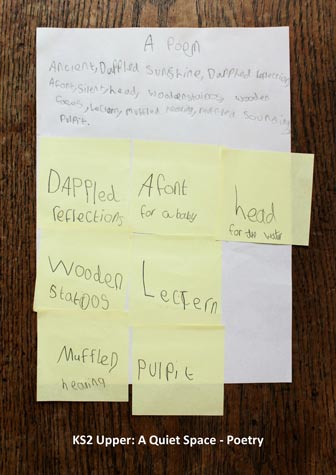 A Poem
Ancient, Dappled Sunshine, Dappled reflections,
A font, Silent, head, wooden stairs, wooden
faces, Lectern, muffled hearing, muffled Sounds
PULPIT.
DAppled
reflections
A font
for a baby
head
for the water
Wooden
StatDOS
LecTern
Muffled
hearing
PULPIT
KS2 Upper: A Quiet Space - Poetry